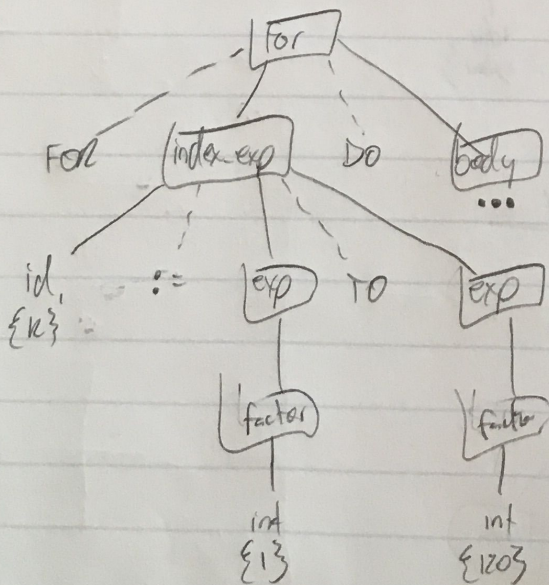 For
FOR index_exp DO body
...
id := exp TO exp
{K}
factor factor
int int
{1} {120}